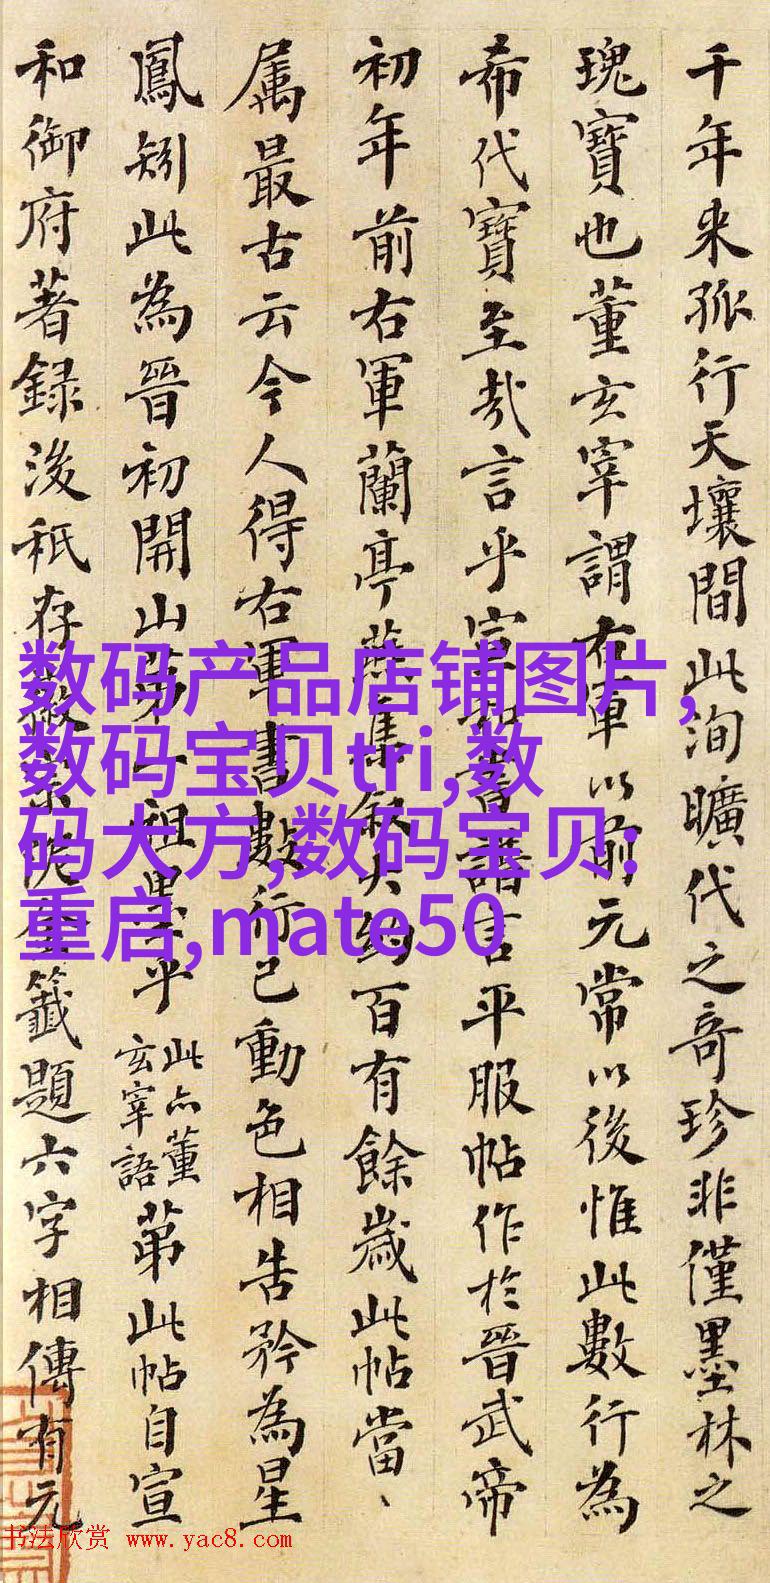 千年来孤行天壤間此洵曠代之奇珍非僅墨林之
瑰寶也董玄宰謂右軍以前元常以後惟此數行為
希代寶至哉言乎宣和書譜言平服帖作於晉武帝
初年前右軍蘭亭燕集叙大約百有餘歲此帖當、
属最古云今人得右軍書數行已動色相告矜為星
鳳矧此為晉初開山第一祖墨乎
此亦董
玄宰語
第此帖自宣
和御府著録後秖存徽宗泥金籤題六字相傳有元
数码产品店铺图片,
数码宝贝tri,数
码大方,数码宝贝:
重启,mate50
书法欣赏 www.yac8.com